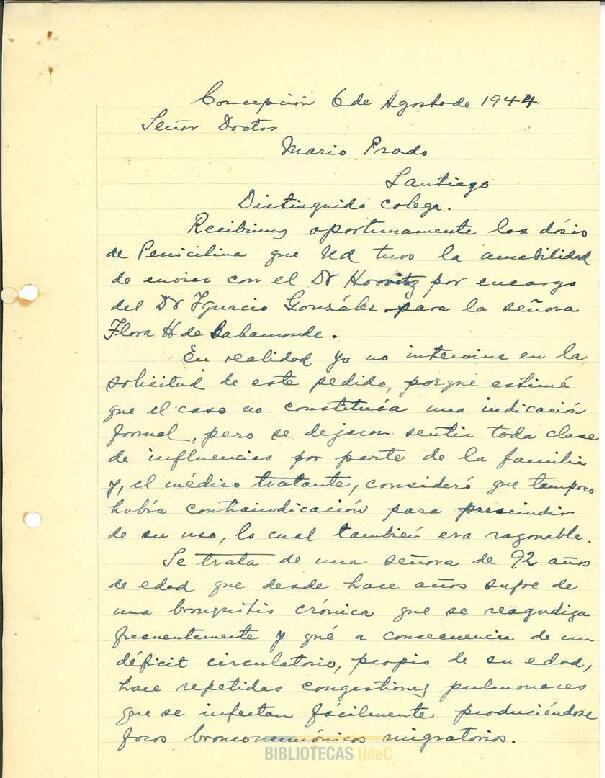 Concepción 6 de Agosto de 1944
Señor Doctor
Mario Prado
Santiago
Distinguido colega.
Recibimos oportunamente las dosis
de Penicilina que Ud tuvo la amabilidad
de enviar con el Dr Horvitz por encargo
del Dr Ignacio González para la señora
Flora H de
En realidad yo no intervine en la
solicitud de este pedido, porque estimé
que el caso no constituía una indicación
formal, pero se dejaron sentir toda clase
de influencias por parte de la familia
y, el médico tratante, consideró que tampoco
había contraindicación para prescindir
de su uso, lo cual también era razonable.
Se trata de una señora de 92 años
de edad que desde hace años sufre de
una bronquitis crónica que se reagudiza
frecuentemente y qué a consecuencia de un
déficit circulatorio, propio de su edad,
hace repetidas congestiones pulmonares
que se infectan fácilmente produciéndose
focos bronconeumónicos migratorios.
BIBLIOTECAS UdeC